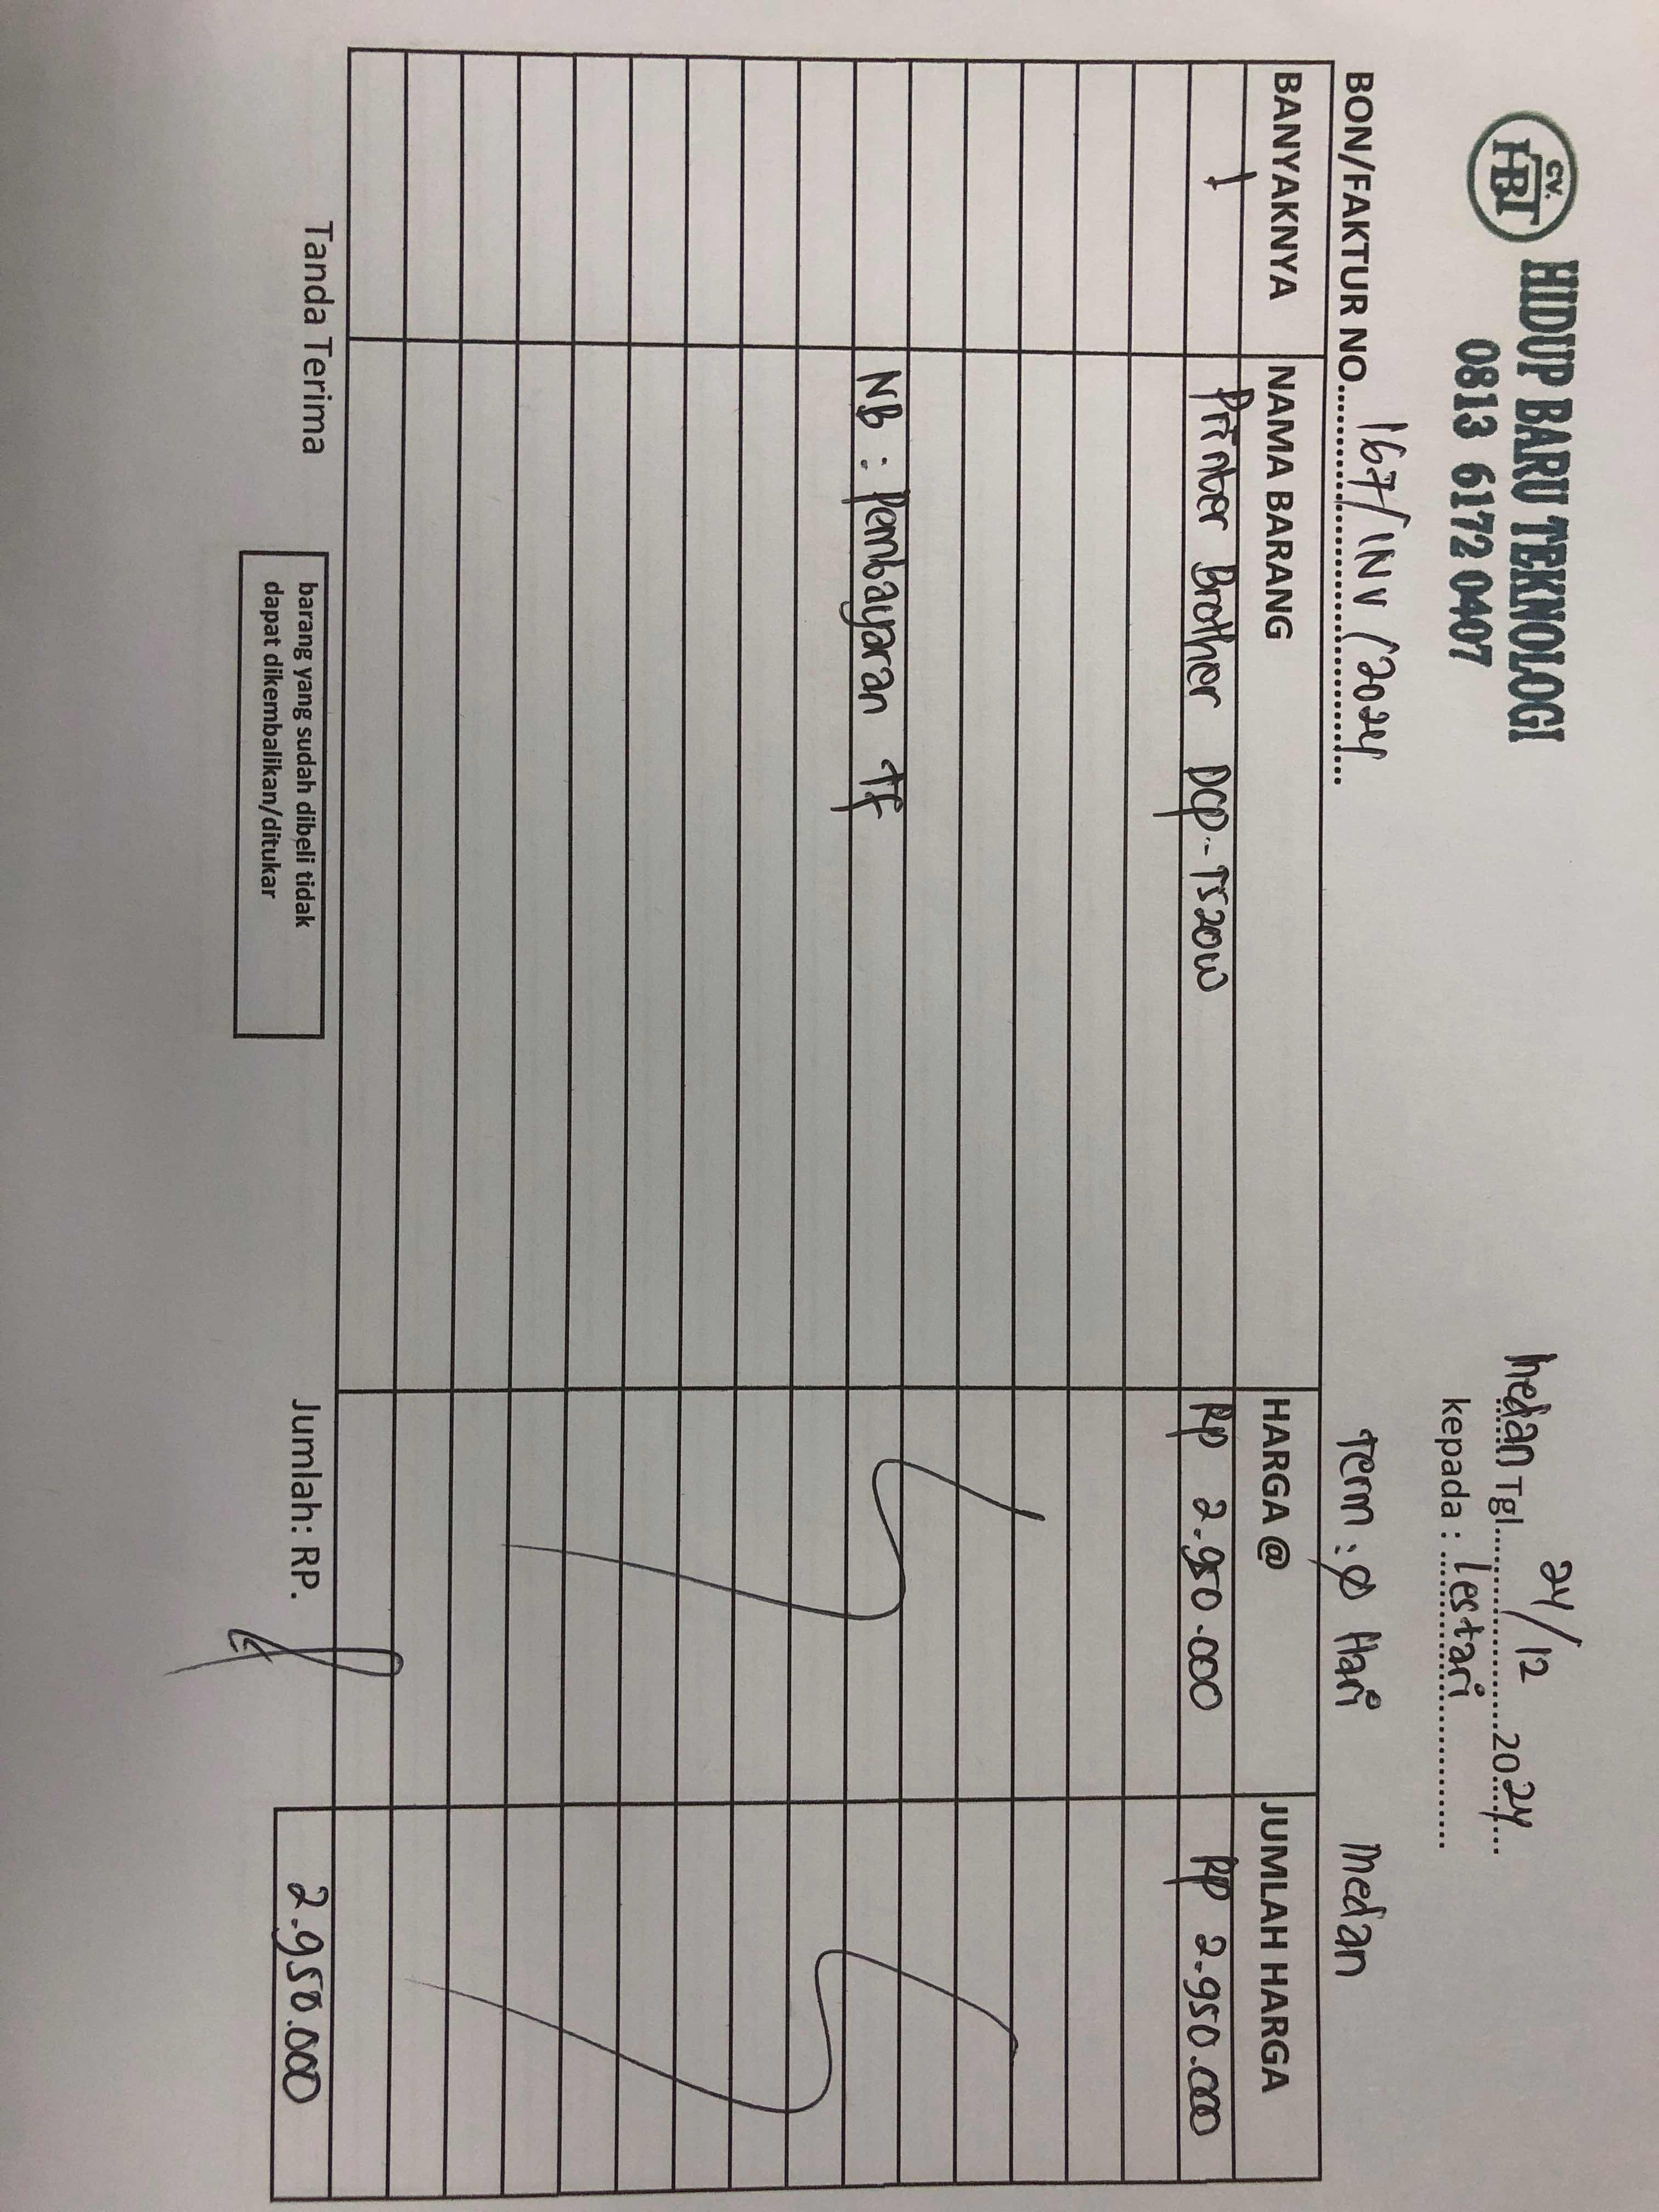 CV.
HBT
HIDUP BARU TEKNOLOGI
0813 6172 0407
Medan Tgl. 24/12 2024
kepada : Lestari
BON/FAKTUR NO. 167/INV/2024
Term : Ø Hari Medan
BANYAKNYA NAMA BARANG HARGA @ JUMLAH HARGA
1 Printer Brother DCP-T520W Rp 2.950.000 Rp 2.950.000
NB : Pembayaran TF
Tanda Terima
barang yang sudah dibeli tidak
dapat dikembalikan/ditukar
Jumlah: RP. 2.950.000